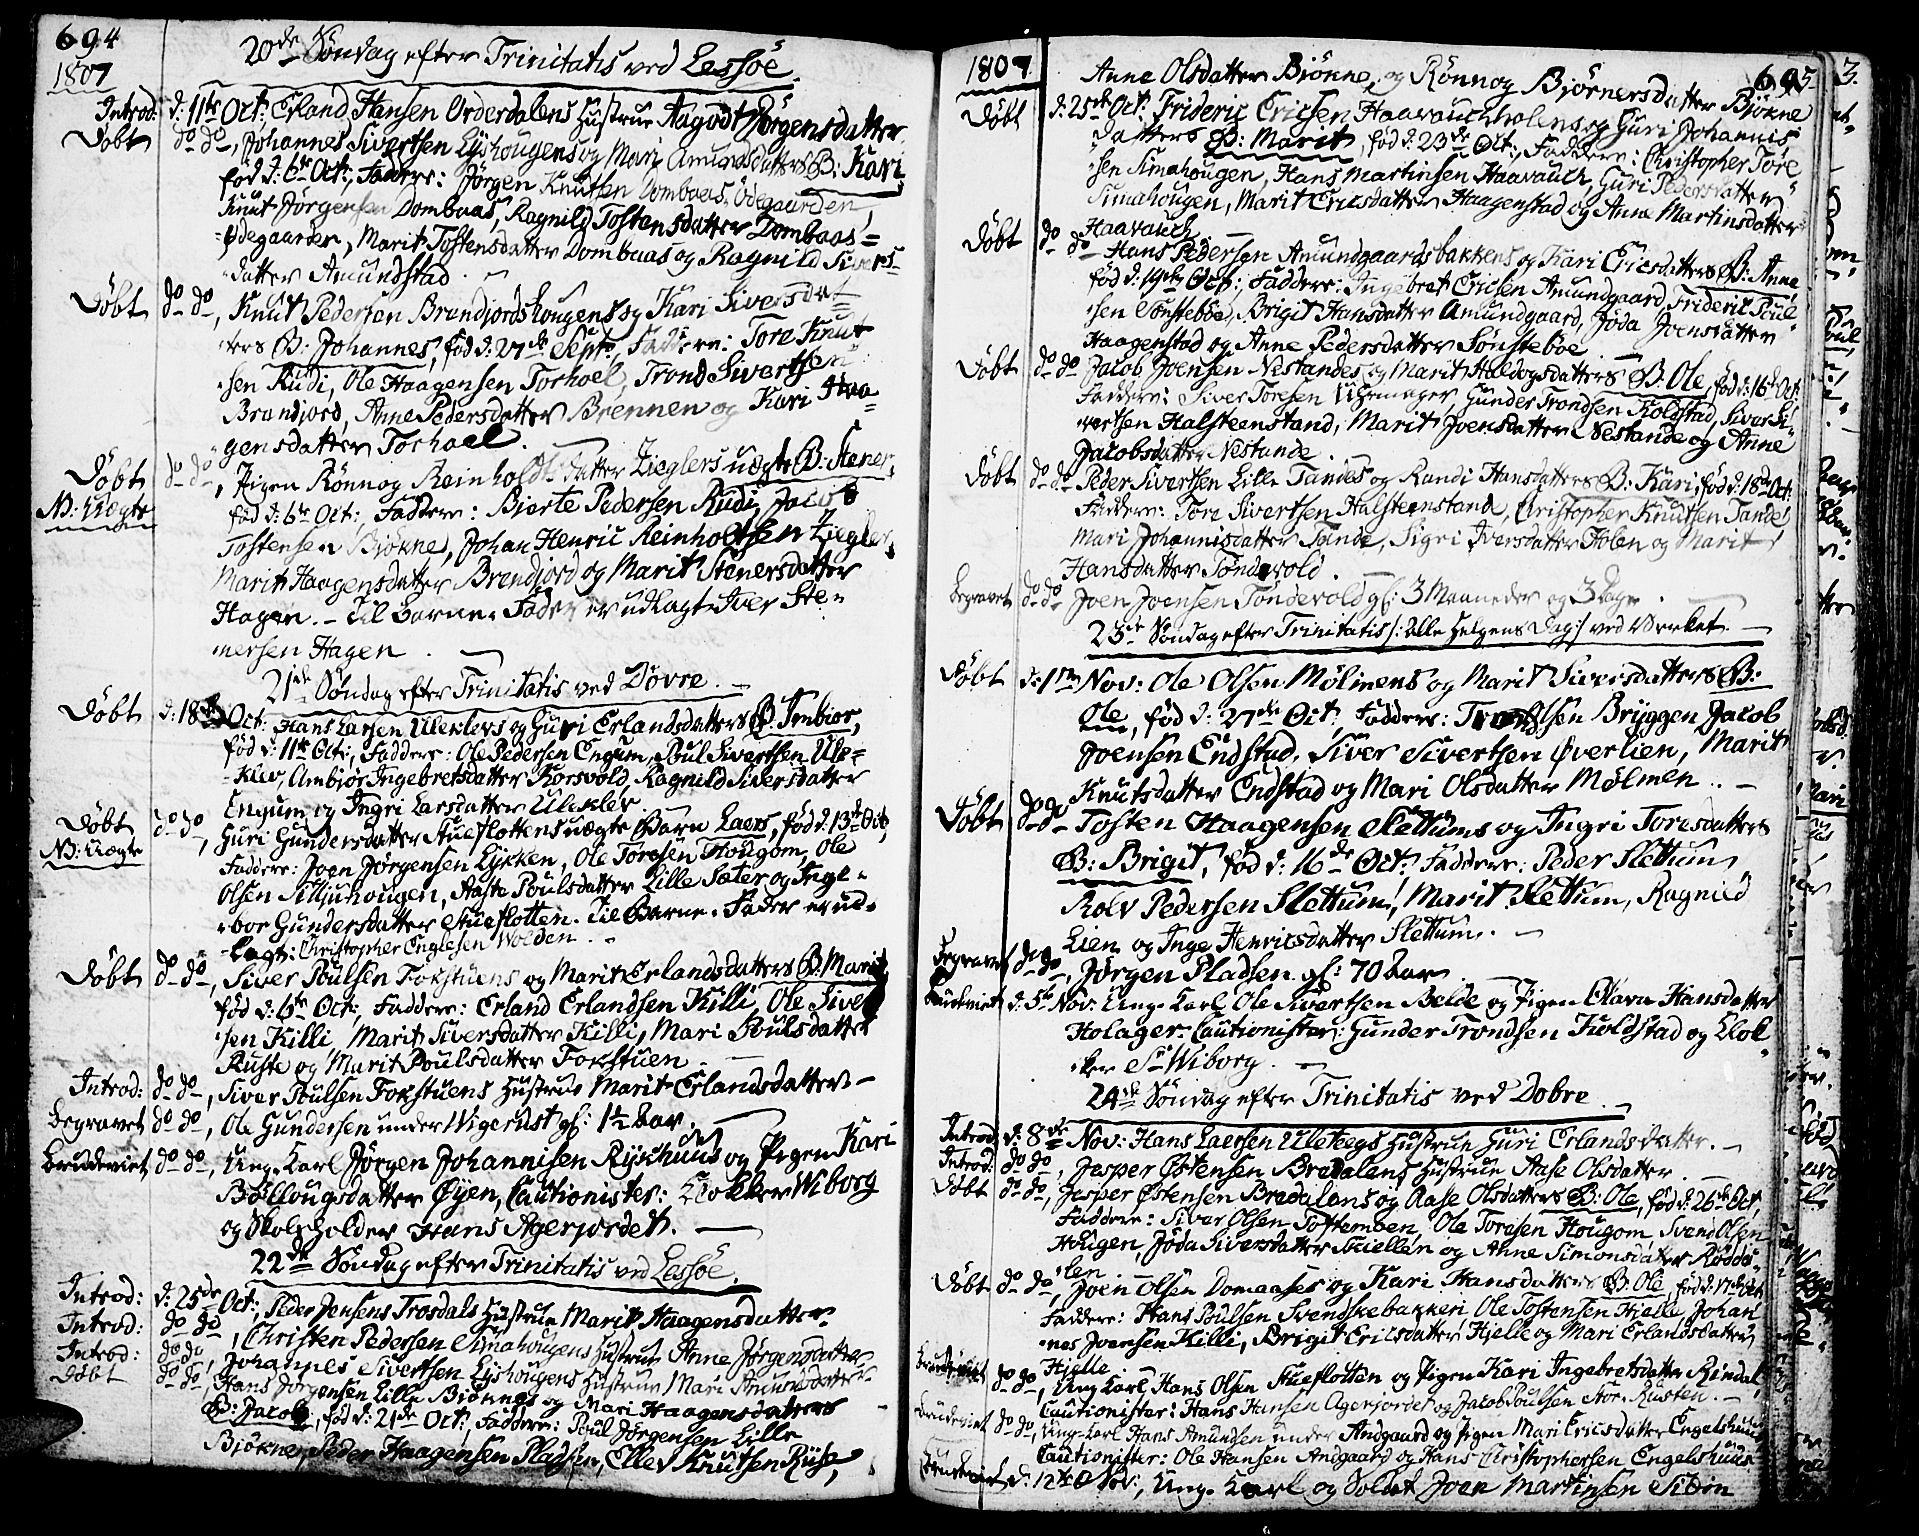 694
1807
20de Søndag efter Trinitatis ved Lessöe.
Introd: d: 11te Oct: Erland Hansen Orderdalens Hustrue Aagodt Jörgensdatter.
Döbt do do, Johannes Sivertsen Lyshougens og Mari Amundsdatters B: Kari,
fød d: 6te Oct:, Faddere: Jørgen Knutsen Dombaas Ødegaarden,
Knut Jørgensen Dombaas, Ragnild Tostensdatter Dombaas=
=Ødegaarden, Marit Tostensdatter Dombaas og Ragnild Sivers-
datter Amundstad.
Döbt do do, Knut Pedersen Brandjordshougens og Kari Siversdat
ters B: Johannes, fød d: 27de Septr, Faddere: Tore Knut
sen Rudi, Ole Haagensen Torhoel, Trond Sivertsen
Brandjord, Anne Pedersdatter Brennen og Kari Haa=
gensdatter Torhoel.
Döbt do do, Pigen Rönnog Reinholdtsdatter Zieglers uægte B: Stener,
NB: Uægte
fød d: 6te Oct:, Faddere: Bjorte Pedersen Rudi, Jacob
Tostensen Björkne, Johan Henric Reinholtsen Ziegler,
Marit Haagensdatter Brandjord og Marit Stenersdatter
Hagen. - Til Barne-Fader er udlagt Iver Ste-
nersen Hagen.
21de Søndag efter Trinitatis ved Dovre.
Döbt d: 18de Oct: Hans Larsen Uleklevs og Guri Erlandsdatters B: Imbior,
fød d: 11te Oct:, Faddere: Ole Pedersen Engum, Poul Sivertsen Ule=
klev, Ambiör Ingebretsdatter Korsvold, Ragnild Siversdatter
Engum og Ingri Larsdatter Uleklev.
Döbt do do, Guri Gundersdatter Stueflottens uægte Barn Laers, fød d: 13de Oct,
NB: Uægte
Faddere: Joen Jørgensen Lykken, Ole Toresen Hougom, Ole
Olsen Silljuhougen, Aaste Poulsdatter Lille Sæter og Inge-
bor Gundersdatter Stueflotten. Til Barne-Fader er ud-
lagt: Christopher Englesen Wolden.
Döbt do do, Siver Poulsen Fokstuens og Marit Erlandsdatters B: Marit
fød d: 6te Oct:, Faddere: Erland Erlandsen Killi, Ole Siver
sen Killi, Marit Siversdatter Killi, Mari Poulsdatter
Ruste og Marit Poulsdatter Fokstuen.
Introd: do do, Siver Poulsen Fokstuens Hustrue Marit Erlandsdatter -
Begravet do do, Ole Gundersen under Wigerust gl: 1½ Aar.
Brudeviet do do, Ung-Karl Jørgen Johannisen Ryshuus og Pigen Kari
Böllougsdatter Øyen, Cautionister: Klokker Wiborg
og Skoleholder Hans Agerjordet.
22de Søndag efter Trinitatis ved Lessöe.
Introd: d: 25de Oct:, Peder Jensens Trosdals Hustrue Marit Haagensdatter.
Introd: do do, Christen Pedersen Simahougens Hustrue Anne Jørgensdatter
Introd: do do, Johannes Sivertsen Lyshougens Hustrue Mari Amundsdatter
Döbt do do, Hans Jørgensen Lille Björknes og Mari Haagensdatters
B: Jacob, fød d: 21de Oct:, Faddere: Poul Jørgensen Lille
Björkne, Peder Haagensen Pladsen, Ellev Knutsen Ruse,
1807
695
Anne Olsdatter Bjönne og Rönnog Bjørnersdatter Bjökne
Döbt d: 25de Oct: Frideric Ericsen Haavauchholens og Guri Johannis
datters B: Marit, fød d: 23de Oct:, Faddere: Christopher Tore
sen Simahougen, Hans Martinsen Haavauch, Guri Pedersdatter
Simahougen, Marit Ericsdatter Haagenstad og Anne Martinsdatter
Haavauch.
Döbt do do Hans Pedersen Amundgaardsbakkens og Kari Ericsdatters B: Anne
fød d: 19de Oct:, Faddere: Ingebret Ericsen Amundgaard, Frideric Poul
sen Sönsteböe, Brigit Hansdatter Amundgaard, Jöda Joensdatter
Haagenstad og Anne Pedersdatter Sönsteböe.
Döbt do do Jacob Joensen Nestandes og Marit Haldogsdatters B: Ole, fød d: 16de Oct:
Faddere: Siver Toresen Uhrmager, Gunder Trondsen Koldstad, Siver Si-
vertsen Halsteenstand, Marit Joensdatter Nestande og Anne
Jacobsdatter Nestande.
Döbt do do Peder Sivertsen Lille Tandes og Randi Hansdatters B: Kari, fød d: 18de Oct:
Faddere: Tore Sivertsen Halsteenstande, Christopher Knutsen Tande,
Mari Johannisdatter Tande, Sigri Iversdatter Holen og Marit
Hansdatter Töndevold.
Begravet do do Joen Joensen Töndevold gl: 3 Maaneder og 3 Dage.
23de Søndag efter Trinitatis /: Alle Helgens Dag:/ ved Verket.
Döbt d: 1ste Nov: Ole Olsen Mölmens og Marit Siversdatters B:
Ole, fød d: 27de Oct:, Faddere: Trondsen Bryggen, Jacob
Joensen Endstad, Siver Sivertsen Øverlien, Marit
Knutsdatter Endstad og Mari Olsdatter Mölmen.
Döbt do do Tosten Haagensen Slettums og Ingri Toresdatters
B: Brigit, fød d: 16de Oct: Faddere: Peder Slettum
Rolv Pedersen Slettum, Marit Slettum, Ragnild
Lien og Inge Henricsdatter Slettum.
Begravet do do, Jørgen Pladsen gl: 70 Aar
Brudeviet d: 5te Nov: Ung-Karl Ole Sivertsen Belde og Pigen Olava Hansdatter
Holager. Cautionister: Gunder Trondsen Koldstad og Klok
ker Sr Wiborg.
24de Søndag efter Trinitatis ved Dovre.
Introd: d: 8de Nov: Hans Laersen Uleteegs Hustrue Guri Erlandsdatter.
Introd: do do, Jesper Østensen Bradalens Hustrue Aase Olsdatter
Döbt do do, Jesper Østensen Bradalens og Aase Olsdatters B: Ole, fød d: 26de Oct,
Faddere: Siver Olsen Toftemoen, Ole Toresen Hougom, Svend Olsen
Hougen, Jöda Siversdatter Skiellen og Anne Simonsdatter Röddö-
len
Döbt do do, Joen Olsen Domaases og Kari Hansdatters B: Ole, fød d: 17de Oct
Faddere: Hans Poulsen Svendskebakken, Ole Tostensen Hjelle, Johan
nes Joensen Killi, Brigit Ericsdatter Hjelle og Mari Erlandsdatter
Hjelle
Brudeviet do do, Ung Karl Hans Olsen Stueflotten og Pigen Kari Ingebretsdatter Rindal,
Cautionister: Hans Hansen Agerjordet og Jacob Poulsen Stor-Rusten.
Brudeviet do do, Ung-Karl Hans Amundsen under Andgaard og Pigen Mari Ericsdatter Engelshuus
Cautionister: Ole Hansen Andgaard og Hans Christophersen Engelshuus.
Brudeviet d: 12te Nov:, Ung-Karl og Soldat Joen Martinsen Siörn